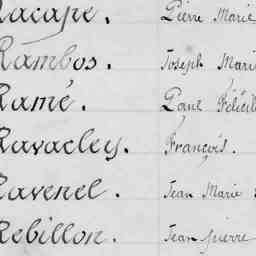 Racape. Pierre Marie
Rambos. Joseph Mari
Ramé. Paul Félici
Ravacley. François.
Ravenel. Jean Marie
Rebillon. Jean pierre